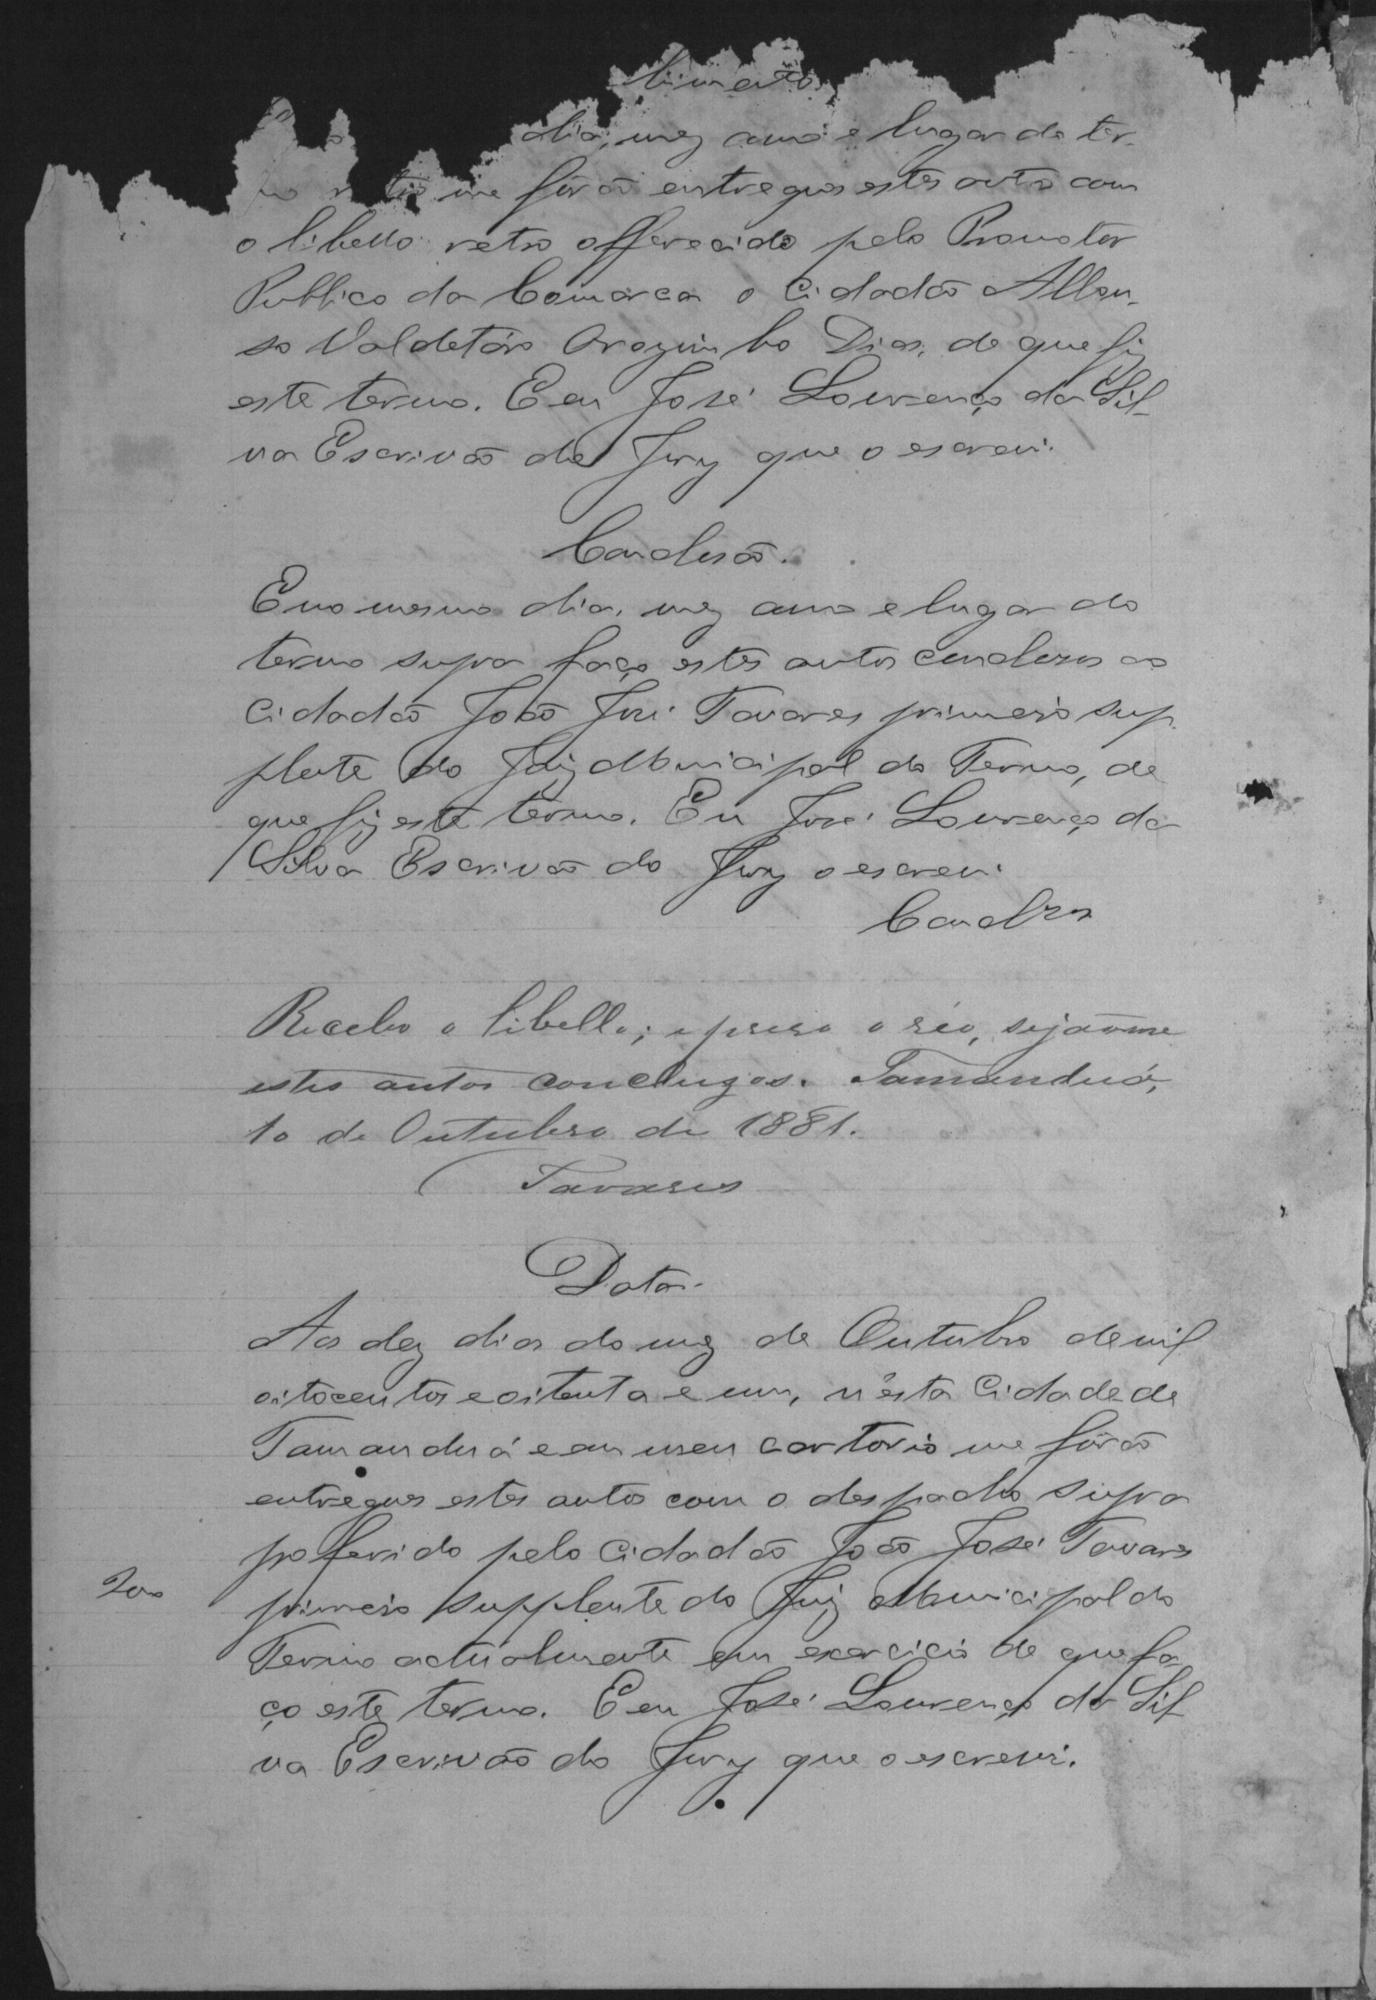 bimento
dia, mez anno e lugar do ter-
mo retro me fôrão entregues estes autos com
o libello retro offerecido pelo Promotor
Publico da Comarca o Cidadão Affon-
so Valdetáro Orozimbo Dias, de que fiz
este termo. E eu José Lourenço da Sil-
va Escrivão do Jury que o escrevi.
Conclusão.
E no mesmo dia, mez anno e lugar do
termo supra faço estes autos concluzos ao
Cidadão João José Tavares primeiro sup-
plente do Juiz Municipal do Termo, de
que fiz este termo. Eu José Lourenço da
Silva Escrivão do Jury o escrevi.
Conclzos
Recebo o libello; e preso o réo, sejão-me
estes autos concluzos. Tamanduá,
10 de Outubro de 1881.
Tavares
Data.
Aos dez dias do mez de Outubro de mil
oitocentos e oitenta e um, n'esta Cidade de
Tamanduá e em meu cartorio me fôrão
entregues estes autos com o despacho supra
proferido pelo Cidadão João José Tavares
primeiro supplente do Juiz Municipal do
Termo actualmente em exercicio de que fa-
ço este termo. E eu José Lourenço da Sil-
va Escrivão do Jury que o escrevi.